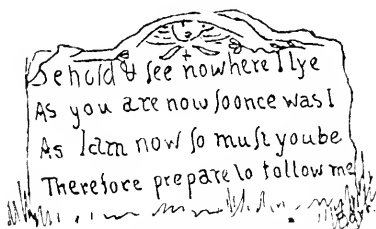 Behold & see now here I lye
As you are now so once was I
As I am now so must you be
Therefore prepare to follow me